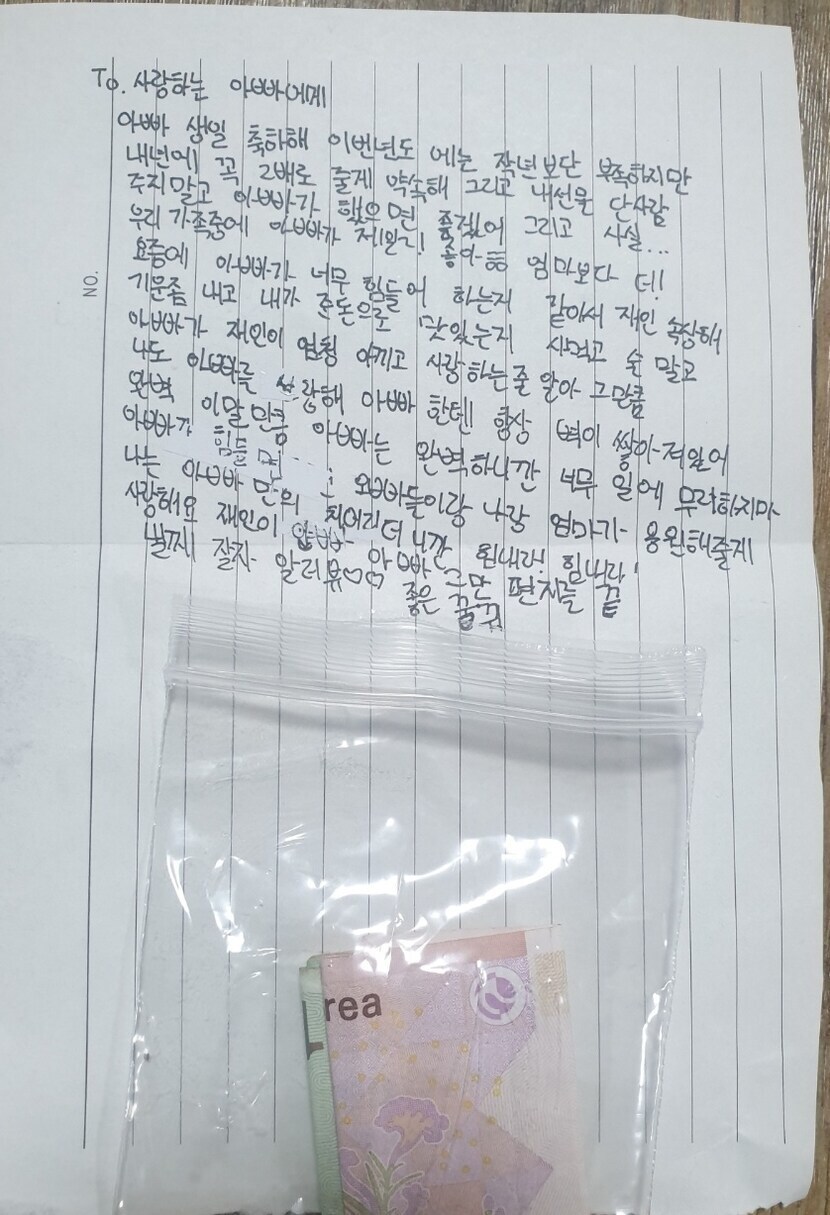 To. 사랑하는 아빠에게
아빠 생일 축하해 이번년도 에는 작년보단 부족하지만
내년에 꼭 2배로 줄게 약속해 그리고 내선물 단사람
주지말고 아빠가 했으면 좋겠어 그리고 사실...
우리 가족중에 아빠가 제일 좋아 엄마보다 더!
요즘에 아빠가 너무 힘들어 하는지 같아서 재인 속상해
기운좀 내고 내가 준돈으로 맛있는지 사먹고 술 말고
아빠가 재인이 엄청 아끼고 사랑하는줄 알아 그만큼
나도 아빠를 사랑해 아빠 한텐! 항상 벽이 쌓아져일어
완벽 이말만큼 아빠는 완벽하니깐 너무 일에 무리하지마
아빠가 힘들면 오빠들이랑 나랑 엄마가 응원해줄게
나는 아빠만의 치어리더니깐 힘내라! 힘내라!
사랑해요 재인이 아빠 그만 편지를 끝
별찌 잘자 알러뷰♡♡ 좋은 꿈꿔
NO.
rea